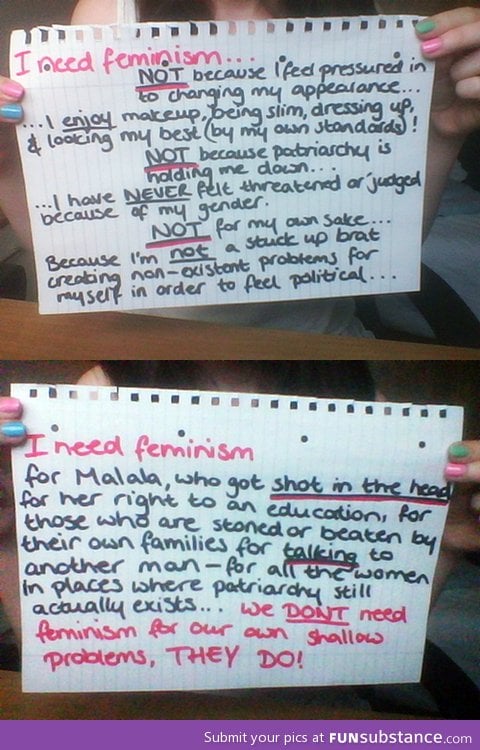 I need feminism...
NOT because I feel pressured in
to changing my appearance...
...I enjoy makeup, being slim, dressing up,
& looking my best (by my own standards)!
NOT because patriarchy is
holding me down...
...I have NEVER felt threatened or judged
because of my gender.
NOT for my own sake...
Because I'm not a stuck up brat
creating non-existant problems for
myself in order to feel political...
I need feminism
for Malala, who got shot in the head
for her right to an education, for
those who are stoned or beaten by
their own families for talking to
another man - for all the women
in places where patriarchy still
actually exists... We DONT need
feminism for our own shallow
problems, THEY DO!
Submit your pics at FUNsubstance.com